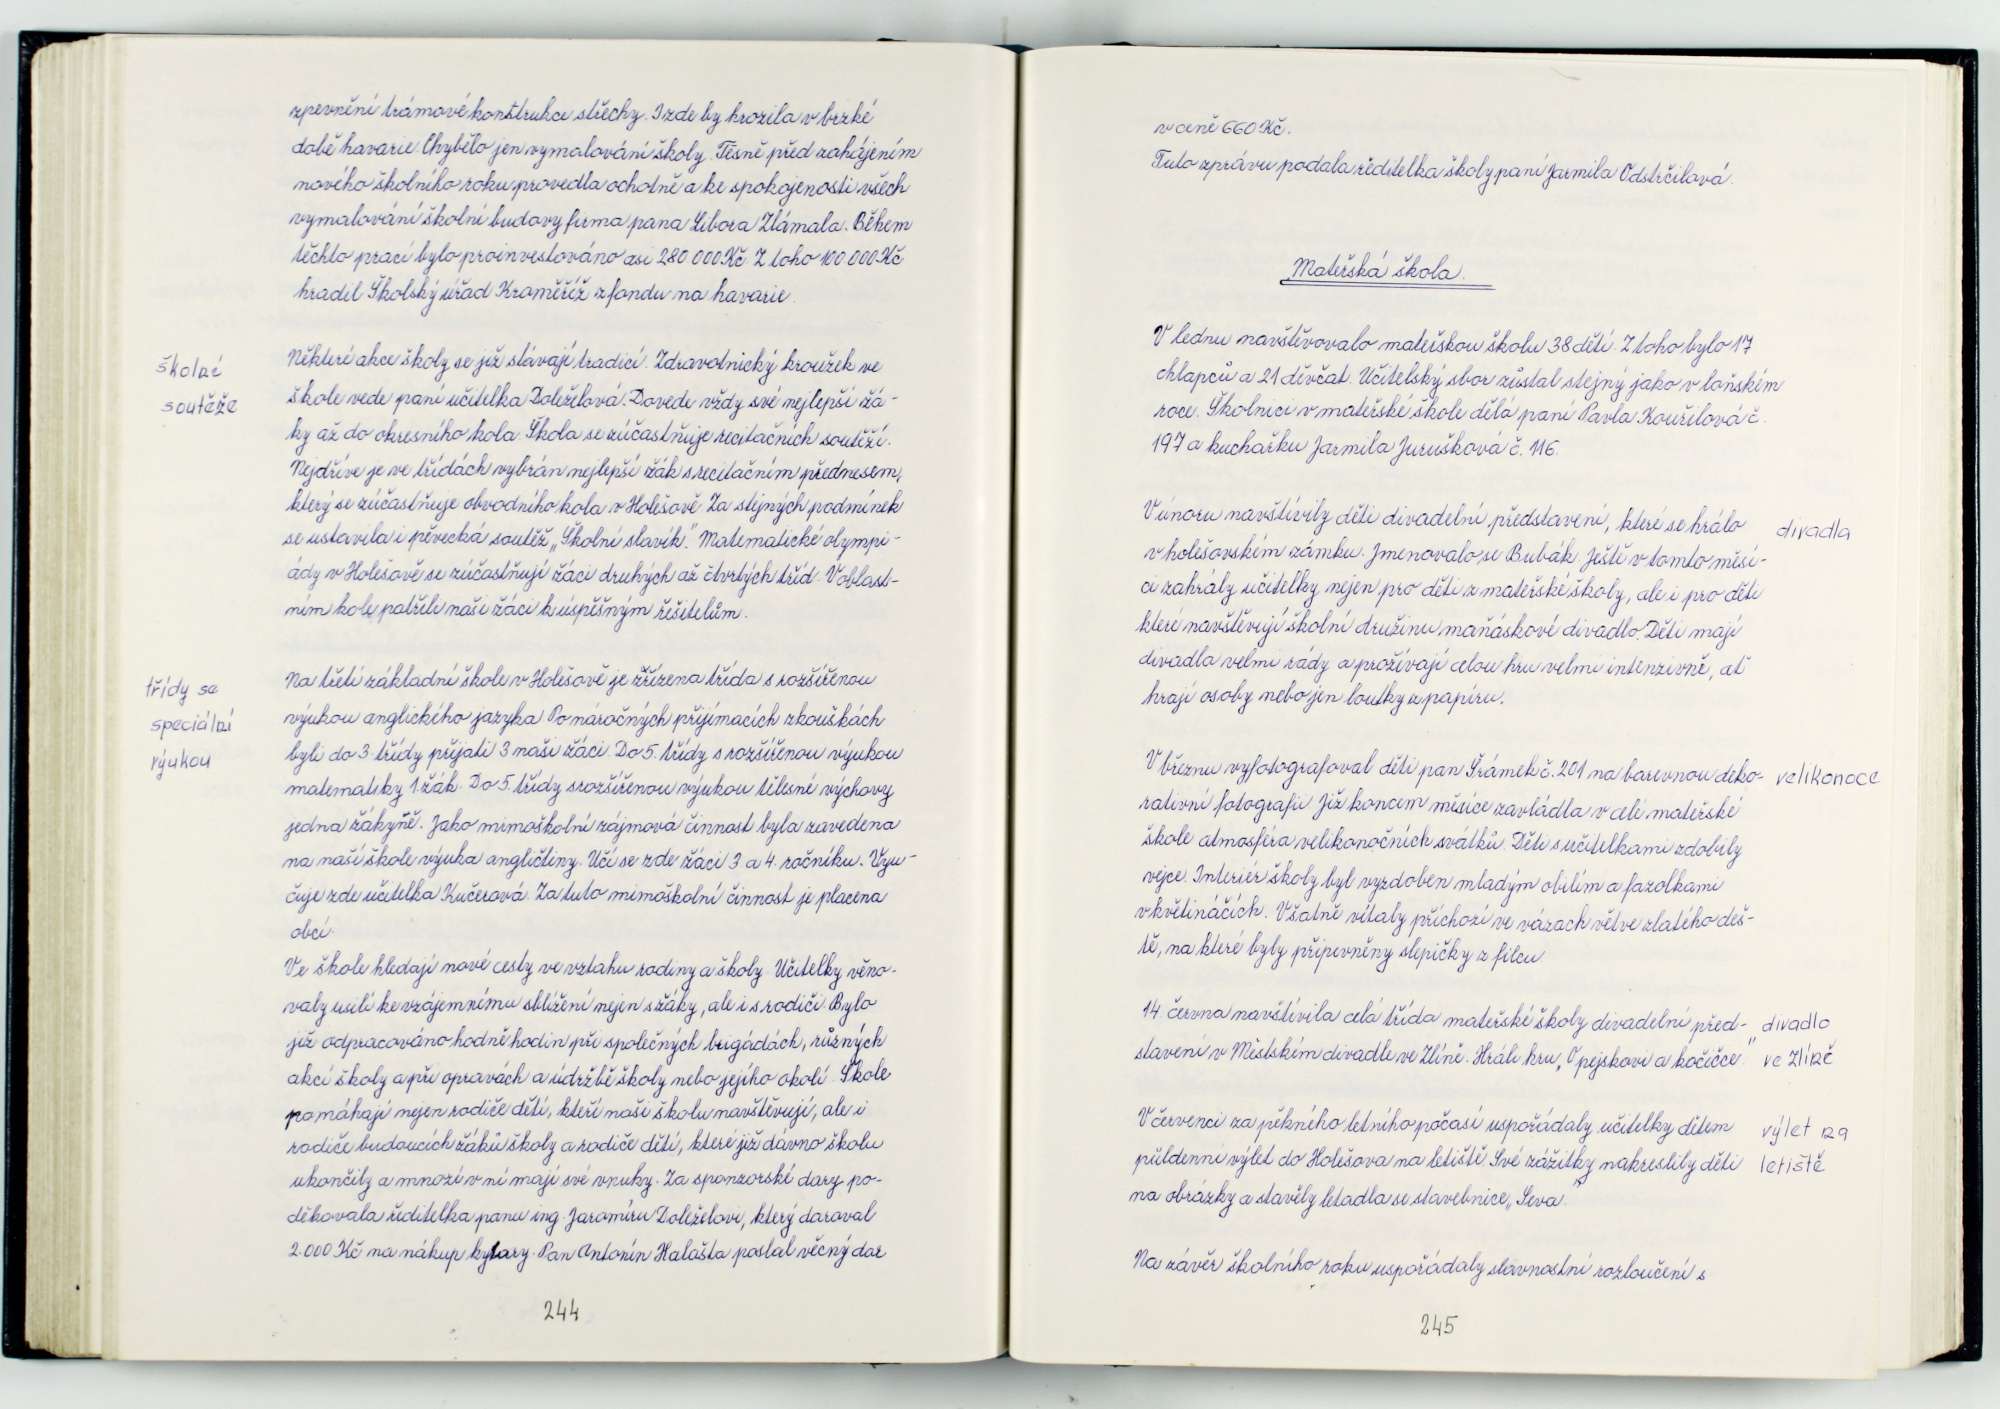 zpevnění trámové konstrukce střechy. I zde by hrozila v brzké
době havarie. Chybělo jen vymalování školy. Těsně před zahájením
nového školního roku provedla ochotně a ke spokojenosti všech
vymalování školní budovy firma pana Libora Zlámala. Během
těchto prací bylo proinvestováno asi 280 000 Kč. Z toho 100 000 Kč
hradil Školský úřad Kroměříž z fondu na havarie.
školní
soutěže
Některé akce školy se již stávají tradicí. Zdravotnický kroužek ve
škole vede paní učitelka Doleželová. Dovede vždy své nejlepší žá-
ky až do okresního kola. Škola se zúčastňuje recitačních soutěží.
Nejdříve je ve třídách vybrán nejlepší žák s recitačním přednesem,
který se zúčastňuje obvodního kola v Holešově. Za stejných podmínek
se ustavila i pěvecká soutěž „Školní slavík". Matematické olympi-
ády v Holešově se zúčastňují žáci druhých až čtvrtých tříd. V oblast-
ním kole patřili naši žáci k úspěšným řešitelům.
třídy se
speciální
výukou
Na třetí základní škole v Holešově je zřízena třída s rozšířenou
výukou anglického jazyka. Po náročných přijímacích zkouškách
byli do 3. třídy přijati 3 naši žáci. Do 5. třídy s rozšířenou výukou
matematiky 1 žák. Do 5. třídy s rozšířenou výukou tělesné výchovy
jedna žákyně. Jako mimoškolní zájmová činnost byla zavedena
na naší škole výuka angličtiny. Učí se zde žáci 3 a 4. ročníku. Vyu-
čuje zde učitelka Kučerová. Za tuto mimoškolní činnost je placena
obcí.
Ve škole hledají nové cesty ve vztahu rodiny a školy. Učitelky věno-
valy úsilí ke vzájemnému sblížení nejen s žáky, ale i s rodiči. Bylo
již odpracováno hodně hodin při společných brigádách, různých
akcí školy a při opravách a údržbě školy nebo jejího okolí. Škole
pomáhají nejen rodiče dětí, kteří naši školu navštěvují, ale i
rodiče budoucích žáků školy a rodiče dětí, které již dávno školu
ukončily a mnozí v ní mají své vnuky. Za sponzorské dary po-
děkovala ředitelka panu ing. Jaromíru Doleželovi, který daroval
2.000 Kč na nákup kytary. Pan Antonín Halašta poslal věcný dar
244
v ceně 660 Kč.
Tuto zprávu podala ředitelka školy paní Jarmila Odstrčilová.
Mateřská škola.
V lednu navštěvovalo mateřskou školu 38 dětí. Z toho bylo 17
chlapců a 21 děvčat. Učitelský sbor zůstal stejný jako v loňském
roce. Školnici v mateřské škole dělá paní Pavla Kouřilová č.
197 a kuchařku Jarmila Jurušková č. 116.
V únoru navštívily děti divadelní představení, které se hrálo
divadla
v holešovském zámku. Jmenovalo se Bubák. Ještě v tomto měsí-
ci zahrály učitelky nejen pro děti z mateřské školy, ale i pro děti
které navštěvují školní družinu maňáskové divadlo. Děti mají
divadla velmi rády a prožívají celou hru velmi intenzivně, ať
hrají osoby nebo jen loutky z papíru.
V březnu vyfotografoval děti pan Šrámek č. 201 na barevnou deko-
velikonoce
rativní fotografii. Již koncem měsíce zavládla v celé mateřské
škole atmosféra velikonočních svátků. Děti s učitelkami zdobily
vejce. Interiér školy byl vyzdoben mladým obilím a fazolkami
v květináčích. V šatně vítaly příchozí ve vázách větve zlatého deš-
tě, na které byly připevněny slepičky z filcu.
14 června navštívila celá třída mateřské školy divadelní před-
divadlo
stavení v Městském divadle ve Zlíně. Hráli hru „O pejskovi a kočičce."
ve zlíně
V červenci za pěkného letního počasí uspořádaly učitelky dětem
výlet na
půldenní výlet do Holešova na letiště. Své zážitky nakreslily děti
letiště
na obrázky a stavěly letadla se stavebnice „Seva".
Na závěr školního roku uspořádaly slavnostní rozloučení s
245